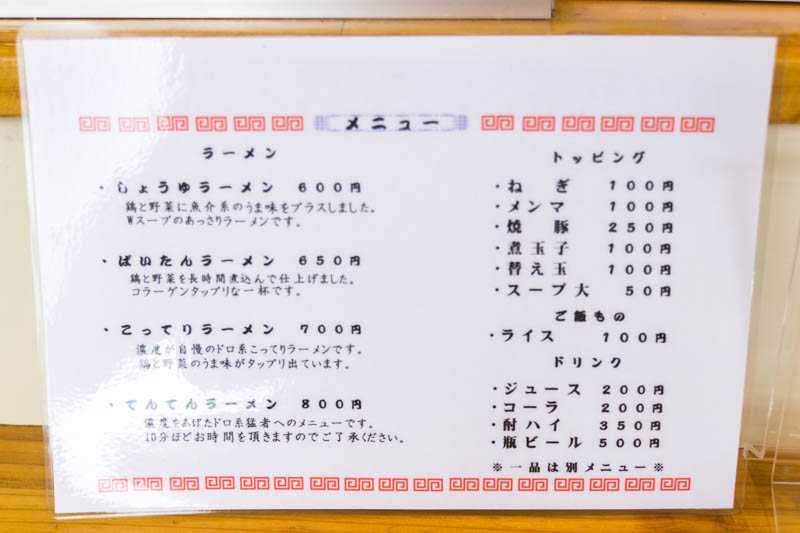 メニュー
ラーメン
・しょうゆラーメン 600円
鶏と野菜に魚介系のうま味をプラスしました。
Wスープのあっさりラーメンです。
・ぱいたんラーメン 650円
鶏と野菜を長時間煮込んで仕上げました。
コラーゲンタップリな一杯です。
・こってりラーメン 700円
濃度が自慢のドロ系こってりラーメンです。
鶏と野菜のうま味がタップリ出ています。
・てんてんラーメン 800円
濃度をあげたドロ系猛者へのメニューです。
10分ほどお時間を頂きますのでご了承ください。
トッピング
・ねぎ 100円
・メンマ 100円
・焼豚 250円
・煮玉子 100円
・替え玉 100円
・スープ大 50円
ご飯もの
・ライス 100円
ドリンク
・ジュース 200円
・コーラ 200円
・酎ハイ 350円
・瓶ビール 500円
※一品は別メニュー※